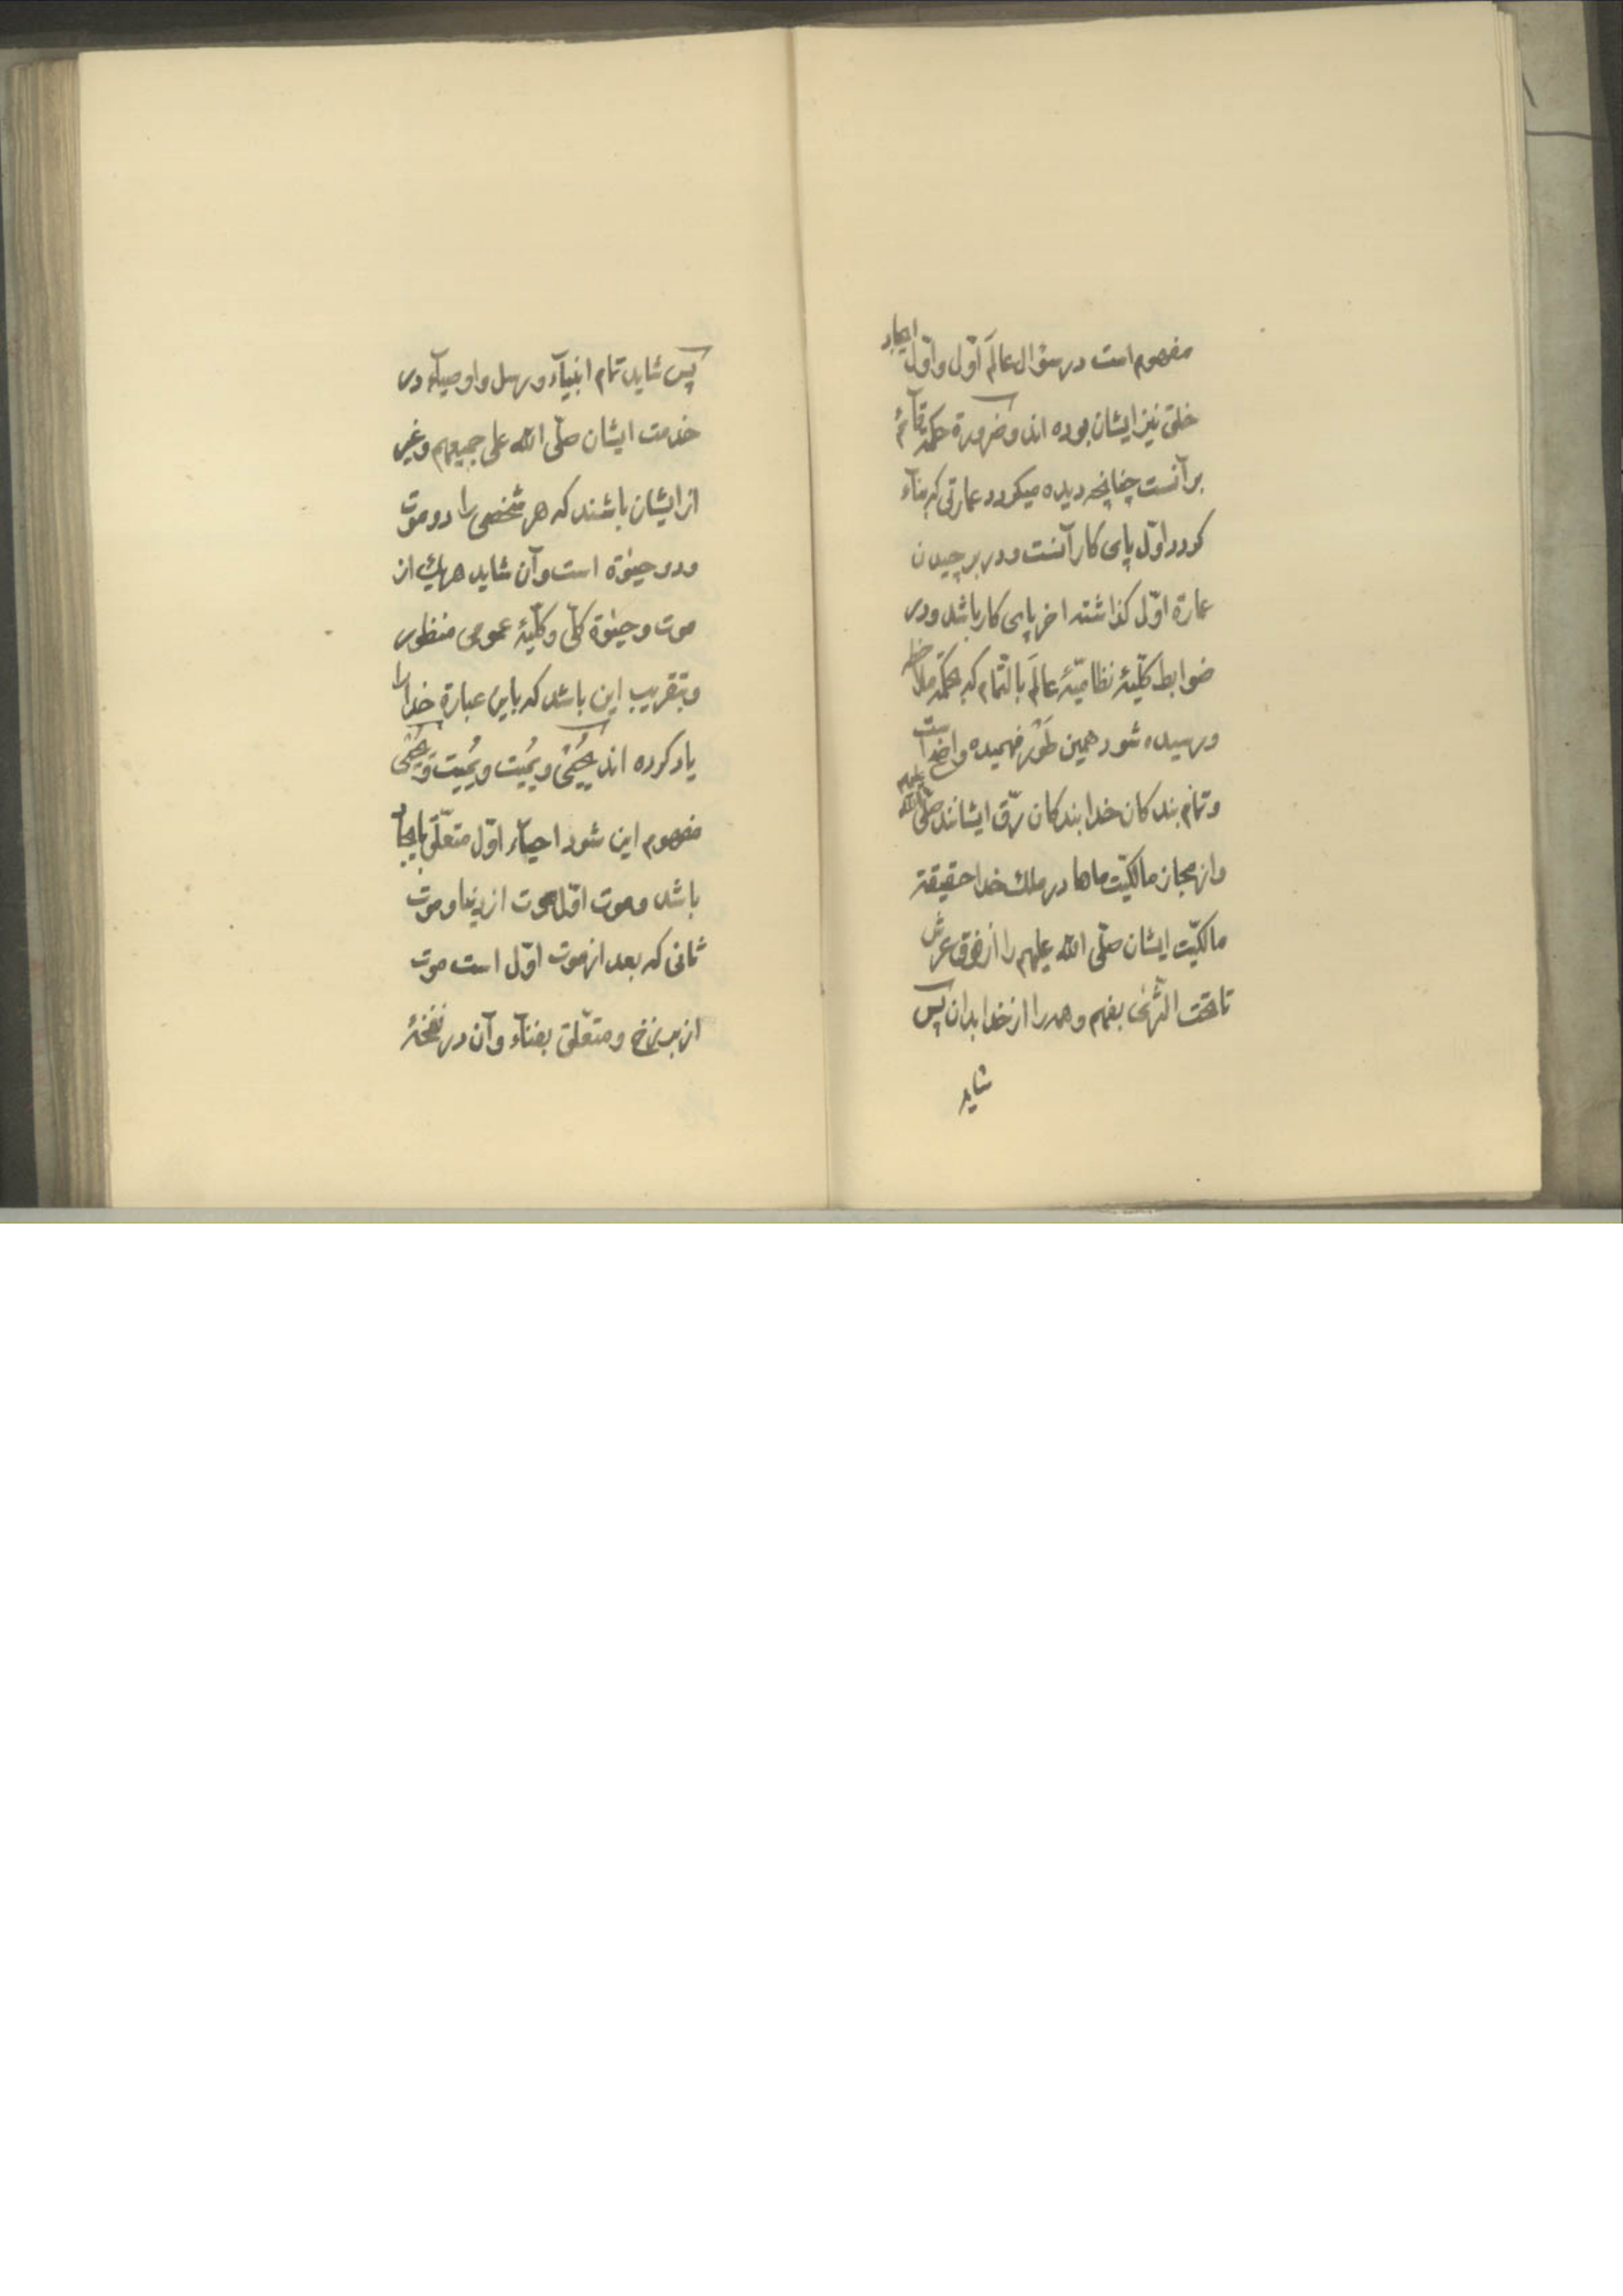 مفهوم است در سؤال عالَم اوّل و اوّل ایجاد
خلق نیز ایشان بوده اند و ضرورة حکمة قآئم
بر آنست چنانچه دیده میکردد عمارتی که بنآء
کردد اوّل پای کار آنست و در برچیدن
عمارة اوّل کذاشته اخر پای کار باشد و در
ضوابط کلّیّهٔ نظامیّهٔ عالَم بالتّمام که بحکمة ملاحظه
و رسیده شود همین طَوْر فهمیده و اضح است
و تمام بندکان خدا بندکان رقّ ایشانند صلّی الله علیهم
و از مجاز مالکیّت ماها در ملك خدا حقیقة
مالکیّت ایشان صلّی الله علیهم را از فوق عرش
تا تحت الثّری بفهم و همه را از خدا بدان پس
شاید
پس شاید تمام انبیآء و رسل و اوصیآء در
خدمت ایشان صلّی الله علی جمیعهم و غیر
از ایشان باشند که هر شخصی را دو موت
و دو حیٰوة است و آن شاید هریك از
موت و حیٰوة کلّی و کلّیّهٔ عمومی منظور
و بتقریب این باشد که باین عبارة خدا را
یاد کرده اند یُحیْی و یُمیت و یُمیت وَ یُحْیی
مفهوم این شود احیآء اوّل متعلّق بایجاد
باشد و موت اوّل موت از دنیا و موت
ثانی که بعد از موت اوّل است موت
از برزخ و متعلّق بفنآء و آن در نفخهٔ